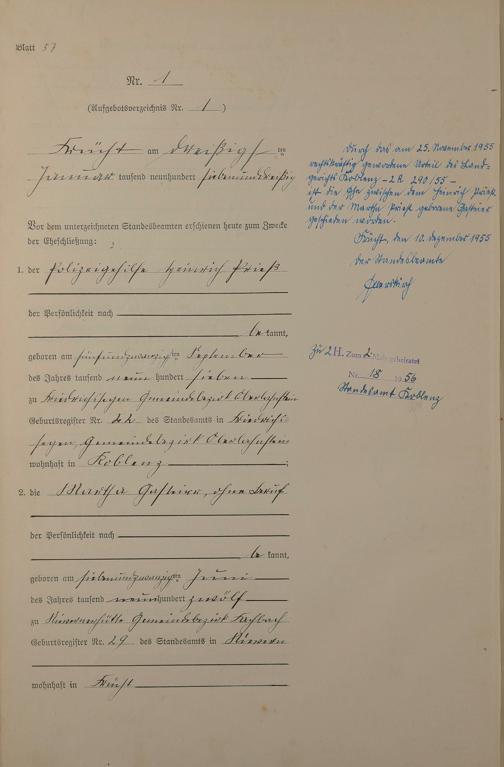 Blatt 57
Nr. 1
(Aufgebotsverzeichnis Nr. 1)
Frücht am dreißigsten
Januar tausend neunhundert siebenunddreißig
Vor dem unterzeichneten Standesbeamten erschienen heute zum Zwecke
der Eheschließung:
1. der Polizeigehilfe Heinrich Prieß
der Persönlichkeit nach
be kannt,
geboren am fünfundzwanzigsten September
des Jahres tausend neun hundert sieben
zu Friedrichssegen Gemeindebezirk Oberlahnstein
Geburtsregister Nr. 22 des Standesamts in Friedrichs-
segen, Gemeindebezirk Oberlahnstein
wohnhaft in Koblenz ;
2. die Martha, ohne Beruf
der Persönlichkeit nach
be kannt,
geboren am siebenundzwanzigsten Juni
des Jahres tausend neunhundert zwölf
zu Nievernerhütte Gemeindebezirk Fachbach
Geburtsregister Nr. 29 des Standesamts in Nievern
wohnhaft in Frücht
Durch das am 25. November 1955
rechtskräftig gewordene Urteil des Land-
gerichts Koblenz - 2 R 290/55 -
ist die Ehe zwischen dem Heinrich Prieß
und der Martha Prieß geborene
geschieden worden.
Frücht, den 10. Dezember 1955
Der Standesbeamte
Zu 2 H. Zum 2 Mal geheiratet
Nr. 18 1956
Standesamt Koblenz